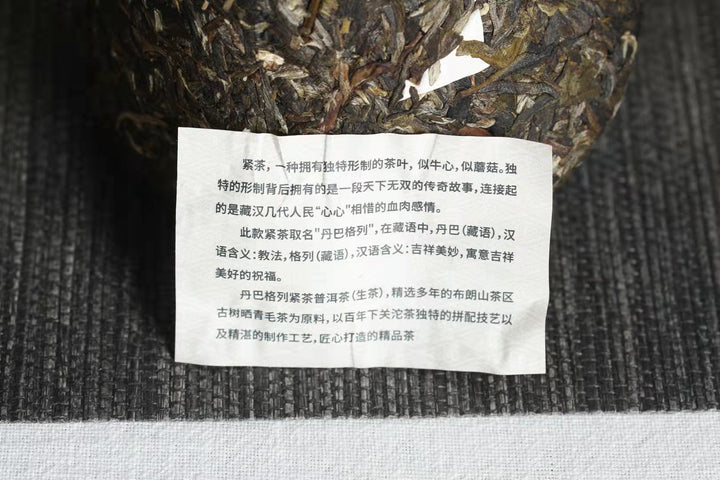 紧茶，一种拥有独特形制的茶叶，似牛心，似蘑菇。独
特的形制背后拥有的是一段天下无双的传奇故事，连接起
的是藏汉几代人民“心心”相惜的血肉感情。
此款紧茶取名"丹巴格列"，在藏语中，丹巴（藏语），汉
语含义：教法，格列（藏语），汉语含义：吉祥美妙，寓意吉祥
美好的祝福。
丹巴格列紧茶普洱茶（生茶），精选多年的布朗山茶区
古树晒青毛茶为原料，以百年下关沱茶独特的拼配技艺以
及精湛的制作工艺，匠心打造的精品茶